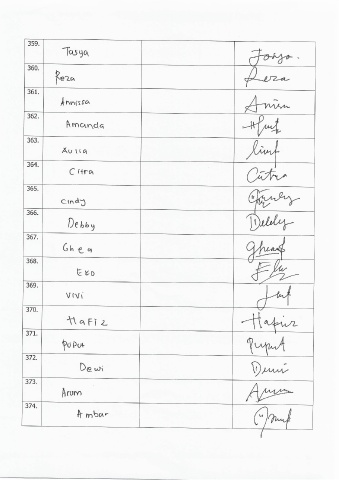 359. Tasya Tasya.
360. Reza Reza
361. Annissa
362. Amanda
363.
364. Citra Citra
365. Cindy
366. Debby Debby
367. Ghea Ghea
368. Eko Eko
369. Vivi
370. HaFiz Hafiz
371. PuPut Puput
372. Dewi Dewi
373. Arum Arum
374. Ambar